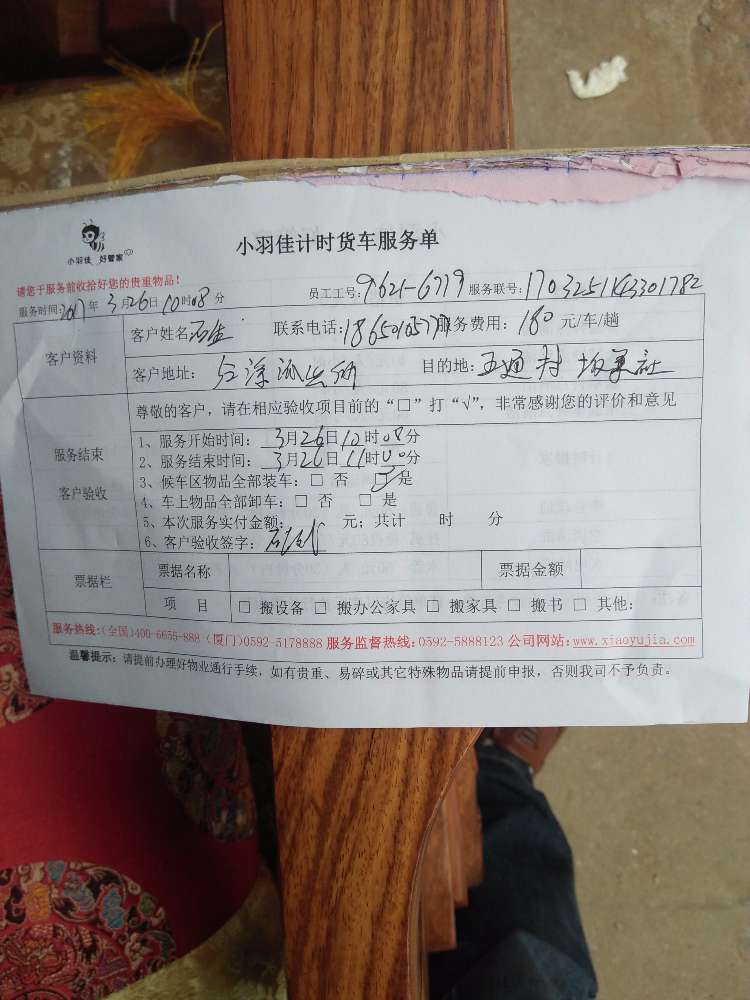 小羽佳 好管家
小羽佳计时货车服务单
请您于服务前收拾好您的贵重物品!
服务时间:2017年3月26日10时08分 员工工号:9621-6779 服务联号:1703251143301782
客户资料
客户姓名 联系电话: 服务费用:180元/车/趟
客户地址: 目的地:五通村
尊敬的客户,请在相应验收项目前的“□”打“√”,非常感谢您的评价和意见
服务结束
客户验收
1、服务开始时间: 3月26日10时08分
2、服务结束时间: 3月26日11时00分
3、候车区物品全部装车:□ 否 ☑ 是
4、车上物品全部卸车:□ 否 □ 是
5、本次服务实付金额: 元;共计 时 分
6、客户验收签字:
票据栏
票据名称 票据金额
项 目 □ 搬设备 □ 搬办公家具 □ 搬家具 □ 搬书 □ 其他:
服务热线:(全国)400-6655-888 (厦门)0592-5178888 服务监督热线:0592-5888123 公司网站:www.xiaoyujia.com
温馨提示:请提前办理好物业通行手续,如有贵重、易碎或其它特殊物品请提前申报,否则我司不予负责。